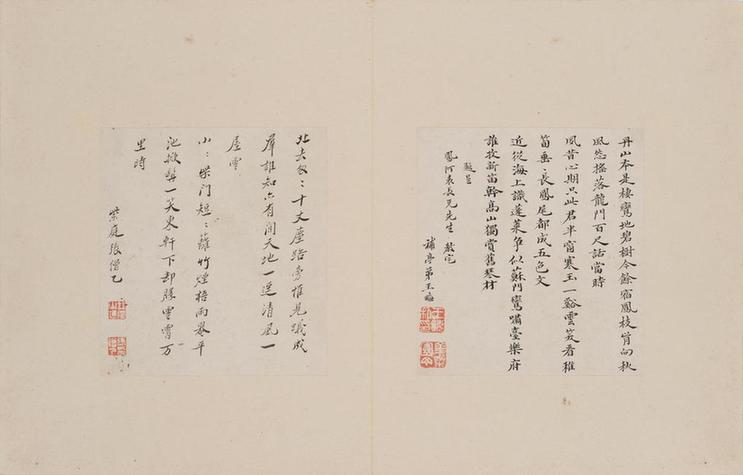 丹山本是棲鸞地碧樹今餘宿鳳枝肯向秋
風怨搖落龍門百尺話當時
夙昔心期只此君半窗寒玉一谿雲笑看稚
筍垂垂長鳳尾都成五色文
近從海上識蓬萊爭似蘇門鸞嘯臺樂府
誰收新嶧幹高山獨賞舊琴材
題呈
鳳阿表長兄先生 教定
補亭弟王
北去
十丈塵路旁惟見蟻成
羣誰知亦有閒天地一逕清風一
屋雲
小小柴門短短蘿竹煙梧雨參平
池掀髯一笑東軒下却勝雲霄万
里時
紫庭張僧乙